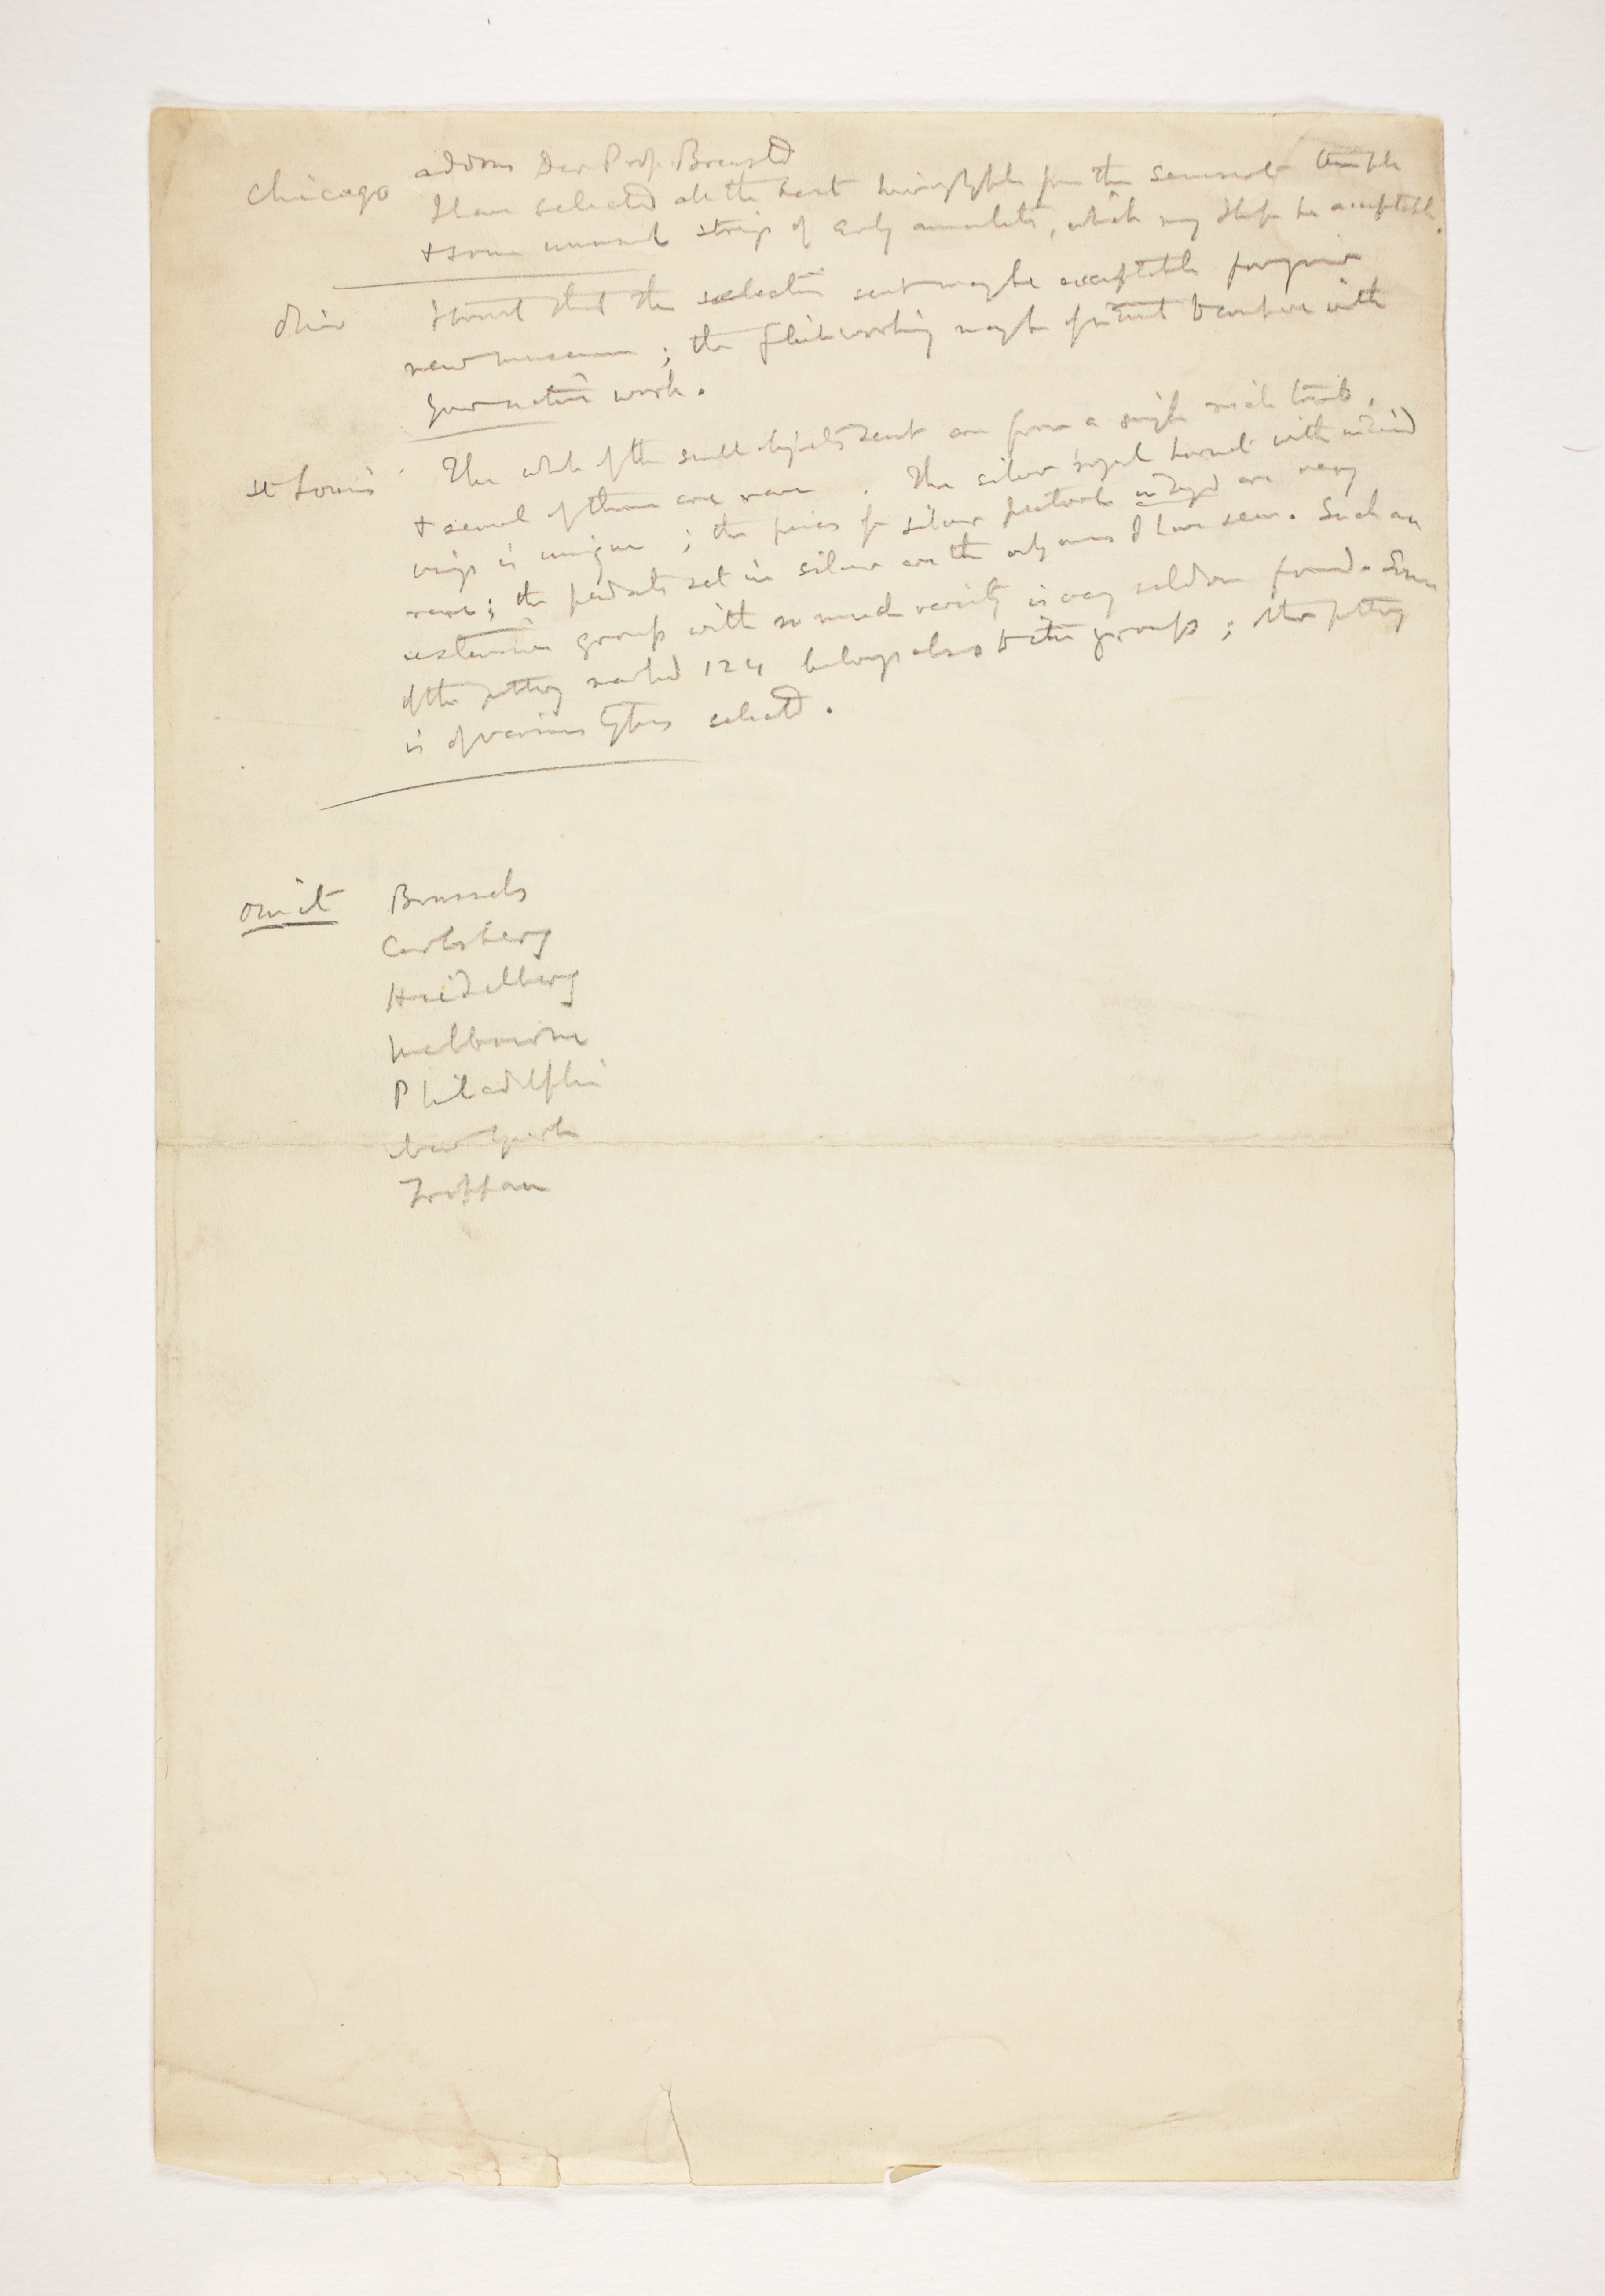 address Dear Prof. Breasted
Chicago I have selected all the best hieroglyphs from the Senusert temple
+ some unusual strings of early amulets, which may I hope be acceptable.
Ohio I trust that the selection sent may be acceptable for your
new museum ; the flint working may be of interest to compare with
your native work.
St Louis The whole of the small objects sent are from a single rich tomb,
+ several of them are rare . The silver royal hornet with inlaid
wings is unique ; the pieces for silver pectorals are very
rare ; the pendants set in silver are the only ones I have seen. Such an
extensive group with so much variety is very seldom found. Some
of the pottery marked 124 belongs also to the group ; other pottery
is of various types selected.
omit Brussels
Carlsberg
Heidelberg
Melbourne
Philadelphia
New York
Troppau